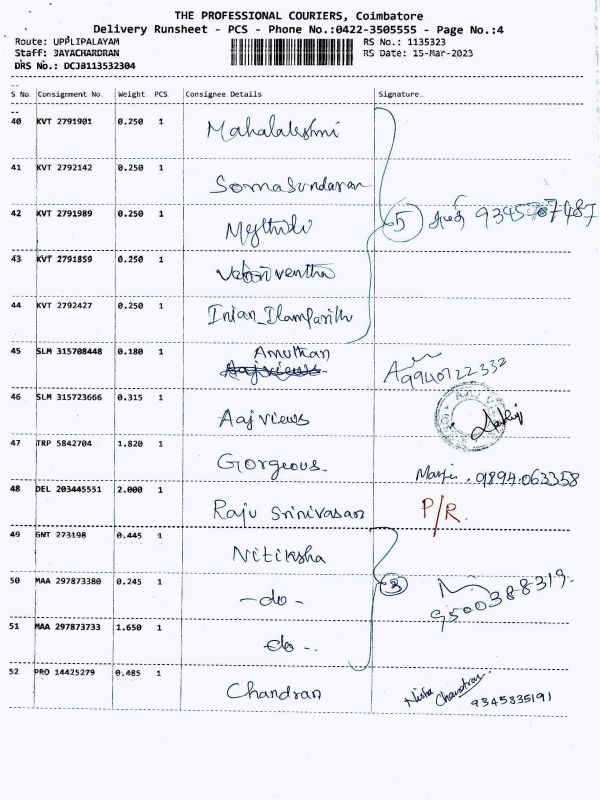 THE PROFESSIONAL COURIERS, Coimbatore
Delivery Runsheet - PCS - Phone No.:0422-3505555 - Page No.:4
Route: UPPLIPALAYAM RS No.: 1135323
Staff: JAYACHARDRAN RS Date: 15-Mar-2023
DRS No.: DCJB113532304
S No. Consignment No. Weight PCS Consignee Details Signature..
40 KVT 2791901 0.250 1 Mahalakshmi
41 KVT 2792142 0.250 1 Somasundaran
42 KVT 2791989 0.250 1 Mythili 5
43 KVT 2791859 0.250 1
44 KVT 2792427 0.250 1 Inian_Ilamparithi
45 SLM 315708448 0.180 1 Amuthan 9940722332
46 SLM 315723666 0.315 1 Aaj views
47 TRP 5842704 1.820 1 Gorgeous 9894063358
48 DEL 203445551 2.000 1 Raju Srinivasan P/R.
49 GNT 273198 0.445 1 Nitiksha
50 MAA 297873380 0.245 1 -do- 3 9500388319.
51 MAA 297873733 1.650 1 do -.
52 PRO 14425279 0.485 1 Chandran Nisha Chandran 9345335191